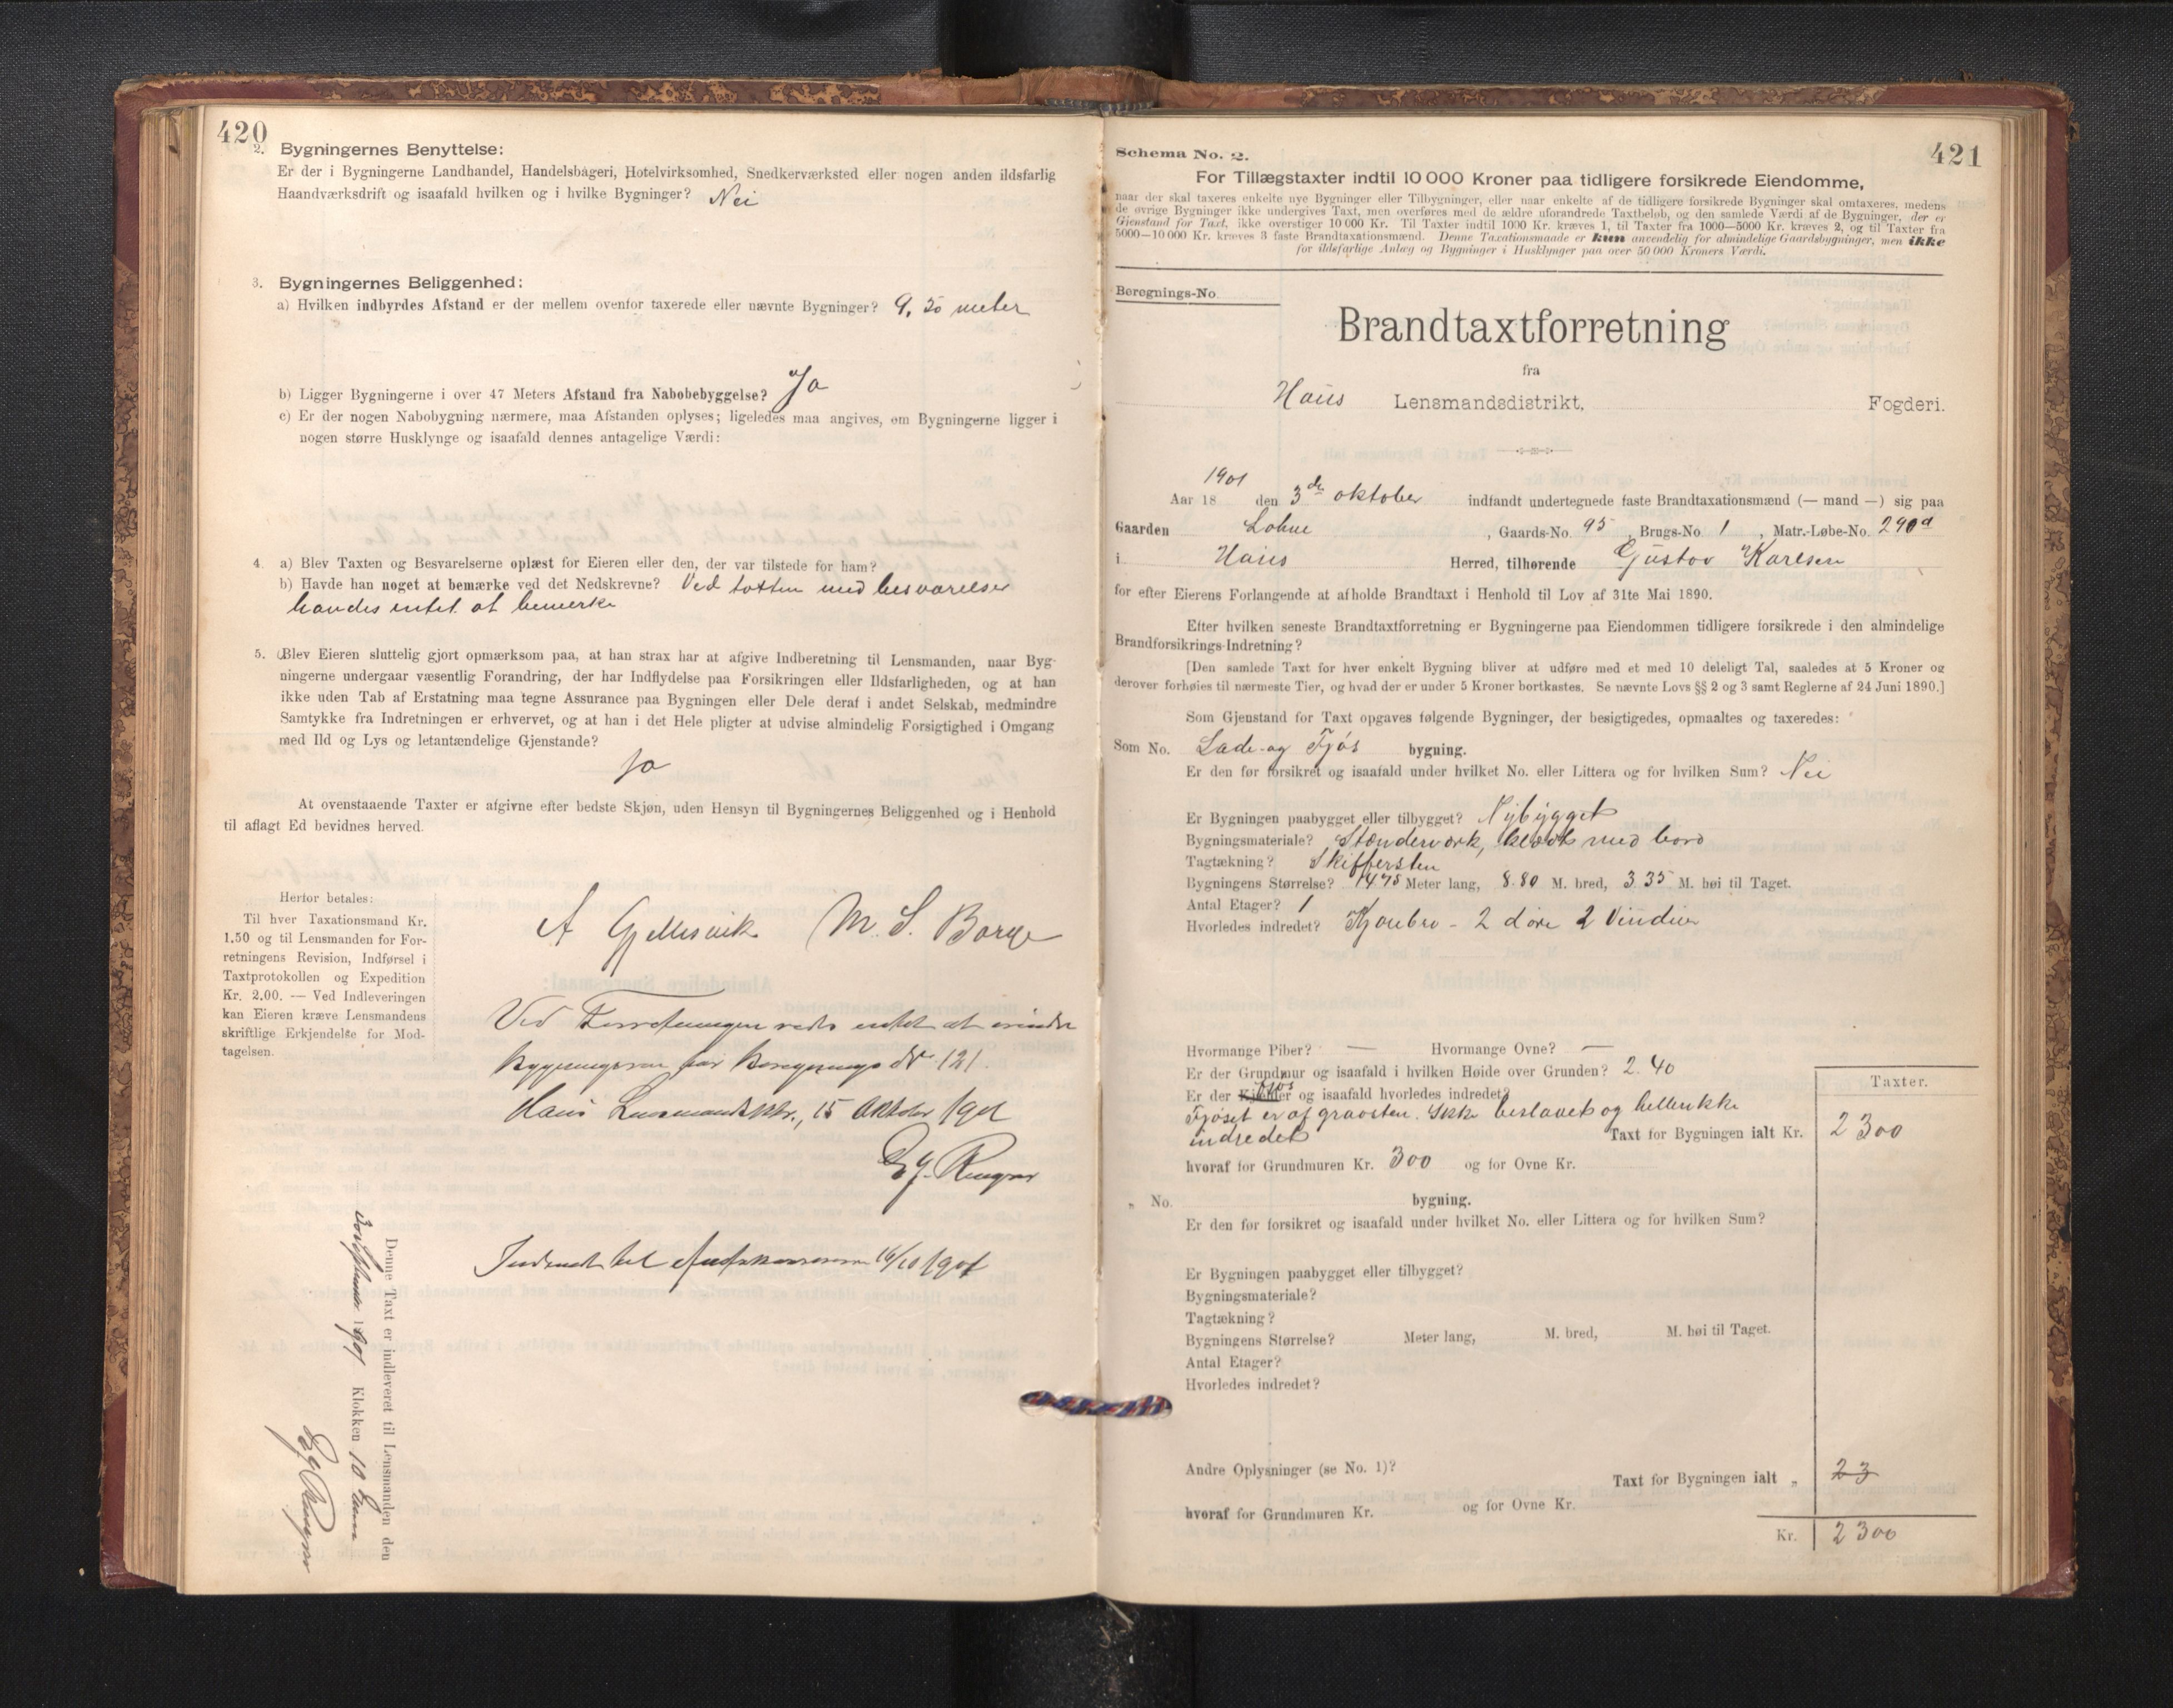 420
2. Bygningernes Benyttelse:
Er der i Bygningerne Landhandel, Handelsbageri, Hotelvirksomhed, Snedkerværksted eller nogen anden ildsfarlig
Haandværksdrift og isaafald hvilken og i hvilke Bygninger? Nei
3. Bygningernes Beliggenhed:
a) Hvilken indbyrdes Afstand er der mellem ovenfor taxerede eller nævnte Bygninger? 9,50 meter
b) Ligger Bygningerne i over 47 Meters Afstand fra Nabobebyggelse? Ja
c) Er der nogen Nabobygning nærmere, maa Afstanden oplyses; ligeledes maa angives, om Bygningerne ligger i
nogen større Husklynge og isaafald dennes antagelige Værdi:
4. a) Blev Taxten og Besvarelserne oplæst for Eieren eller den, der var tilstede for ham?
b) Havde han noget at bemærke ved det Nedskrevne? Ved taxten med besvarelser
havdes intet at bemerke
5. Blev Eieren sluttelig gjort opmærksom paa, at han strax har at afgive Indberetning til Lensmanden, naar Byg-
ningerne undergaar væsentlig Forandring, der har Indflydelse paa Forsikringen eller Ildsfarligheden, og at han
ikke uden Tab af Erstatning maa tegne Assurance paa Bygningen eller Dele deraf i andet Selskab, medmindre
Samtykke fra Indretningen er erhvervet, og at han i det Hele pligter at udvise almindelig Forsigtighed i Omgang
med Ild og Lys og letantændelige Gjenstande?
Ja
At ovenstaaende Taxter er afgivne efter bedste Skjøn, uden Hensyn til Bygningernes Beliggenhed og i Henhold
til aflagt Ed bevidnes herved.
Herfor betales:
Til hver Taxationsmand Kr.
1.50 og til Lensmanden for For-
retningens Revision, Indførsel i
Taxtprotokollen og Expedition
Kr. 2.00. — Ved Indleveringen
kan Eieren kræve Lensmandens
skriftlige Erkjendelse for Mod-
tagelsen.
A Gjellesvik M. S. Borge
Ved Forretningen vides intet at erindre
Bygningerne har Beregnings No 121.
Haus Lensmandsktr., 15 Oktober 1901
Indsendt til 16/10 1901
Denne Taxt er indleveret til Lensmanden den
1901 Klokken 10
421
Schema No. 2.
For Tillægstaxter indtil 10 000 Kroner paa tidligere forsikrede Eiendomme,
naar der skal taxeres enkelte nye Bygninger eller Tilbygninger, eller naar enkelte af de tidligere forsikrede Bygninger skal omtaxeres, medens
de øvrige Bygninger ikke undergives Taxt, men overføres med de ældre uforandrede Taxtbeløb, og den samlede Værdi af de Bygninger, der er
Gjenstand for Taxt, ikke overstiger 10 000 Kr. Til Taxter indtil 1000 Kr. kræves 1, til Taxter fra 1000—5000 Kr. kræves 2, og til Taxter fra
5000—10 000 Kr. kræves 3 faste Brandtaxationsmænd. Denne Taxationsmaade er kun anvendelig for almindelige Gaardsbygninger, men ikke
for ildsfarlige Anlæg og Bygninger i Husklynger paa over 50 000 Kroners Værdi.
Beregnings-No.
Brandtaxtforretning
fra
Haus Lensmandsdistrikt, Fogderi.
Aar 18 1901 den 3de oktober indfandt undertegnede faste Brandtaxationsmænd (— mand —) sig paa
Gaarden Lohne, Gaards-No. 95, Brugs-No. 1, Matr.-Løbe-No. 290a
i Haus Herred, tilhørende Gustav Karlsen
for efter Eierens Forlangende at afholde Brandtaxt i Henhold til Lov af 31te Mai 1890.
Efter hvilken seneste Brandtaxtforretning er Bygningerne paa Eiendommen tidligere forsikrede i den almindelige
Brandforsikrings-Indretning?
[Den samlede Taxt for hver enkelt Bygning bliver at udføre med et med 10 deleligt Tal, saaledes at 5 Kroner og
derover forhøies til nærmeste Tier, og hvad der er under 5 Kroner bortkastes. Se nævnte Lovs §§ 2 og 3 samt Reglerne af 24 Juni 1890.]
Som Gjenstand for Taxt opgaves følgende Bygninger, der besigtigedes, opmaaltes og taxeredes:
Som No. Lade- og Fjøs bygning.
Er den før forsikret og isaafald under hvilket No. eller Littera og for hvilken Sum? Nei
Er Bygningen paabygget eller tilbygget? Nybygget
Bygningsmateriale? Stænderværk, klædt med bord
Tagtækning? Skiffersten
Bygningens Størrelse? 14 75 Meter lang, 8.80 M. bred, 3 35 M. høi til Taget.
Antal Etager? 1
Hvorledes indredet? Kjørebro - 2 døre 2 Vinduer
Hvormange Piber? — Hvormange Ovne? —
Er der Grundmur og isaafald i hvilken Høide over Grunden? 2.40
Er der Kjelder fjøs og isaafald hvorledes indredet?
Fjøset er af graasten. Ikke beslaaet og heller ikke
indredet
Taxter.
Taxt for Bygningen ialt Kr. 2300
hvoraf for Grundmuren Kr. 300 og for Ovne Kr.
„ No. bygning.
Er den før forsikret og isaafald under hvilket No. eller Littera og for hvilken Sum?
Er Bygningen paabygget eller tilbygget?
Bygningsmateriale?
Tagtækning?
Bygningens Størrelse? Meter lang, M. bred, M. høi til Taget.
Antal Etager?
Hvorledes indredet?
Andre Oplysninger (se No. 1)?
Taxt for Bygningen ialt „ 23
hvoraf for Grundmuren Kr. og for Ovne Kr.
Kr. 2300